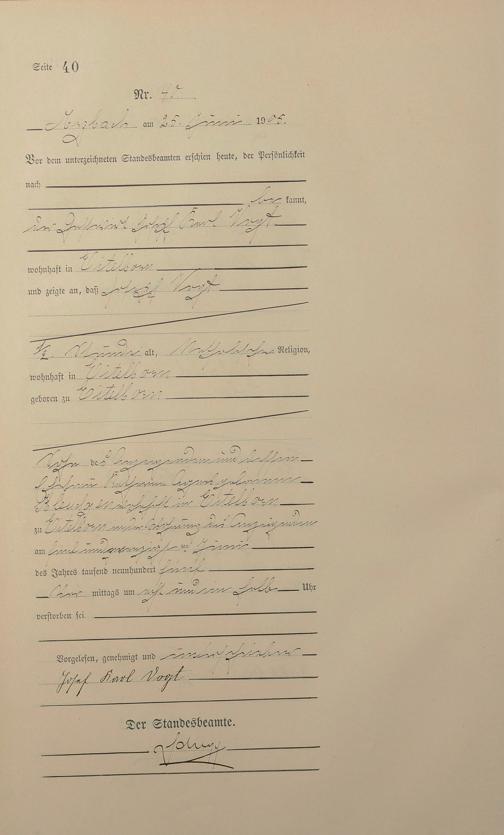 Seite 40
Nr.
am 25. Juni 1905.
Vor dem unterzeichneten Standesbeamten erschien heute, der Persönlichkeit
nach
be kannt,
Josef Karl Vogt
wohnhaft in Eitelborn
und zeigte an, daß Josef Vogt
1/2 Stunde alt, katholischer Religion,
wohnhaft in Eitelborn
geboren zu Eitelborn
Sohn des Anzeigenden und dessen
Ehefrau Katharina Agnes geborenen
wohnhaft in Eitelborn
zu Eitelborn in der Wohnung des Anzeigenden
am fünf und zwanzigsten Juni
des Jahres tausend neunhundert fünf
Vor mittags um acht und ein halb Uhr
verstorben sei
Vorgelesen, genehmigt und unterschrieben
Josef Karl Vogt
Der Standesbeamte.